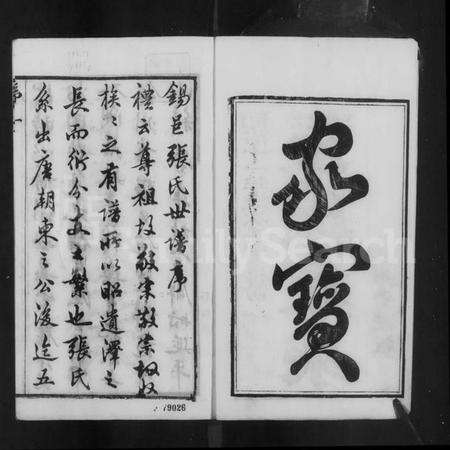 家寶
錫邑張氏世譜序
禮云尊祖故敬宗敬宗故收
族〻之有譜所以昭遺澤之
長而衍分支之繁也張氏
系出唐朝東之公後迄五
FamilySearch
9026